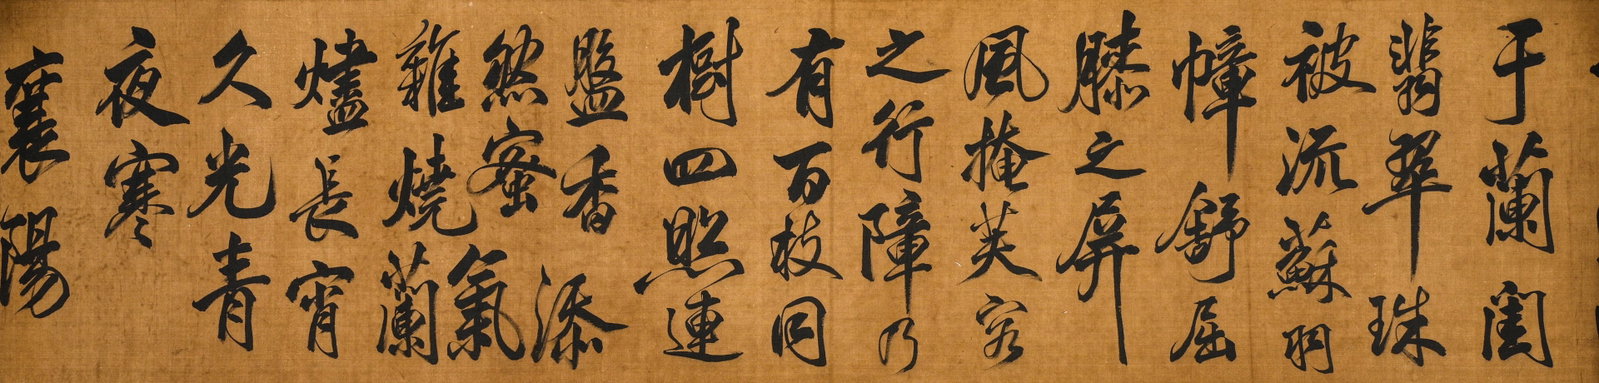 于蘭閨
翡翠珠
被流蘇羽
幛舒屈
膝之屏
風掩芙容
之行障乃
有百枝同
樹四照連
盤香添
然蜜氣
雜燒蘭
燼長宵
久光青
夜寒
襄陽